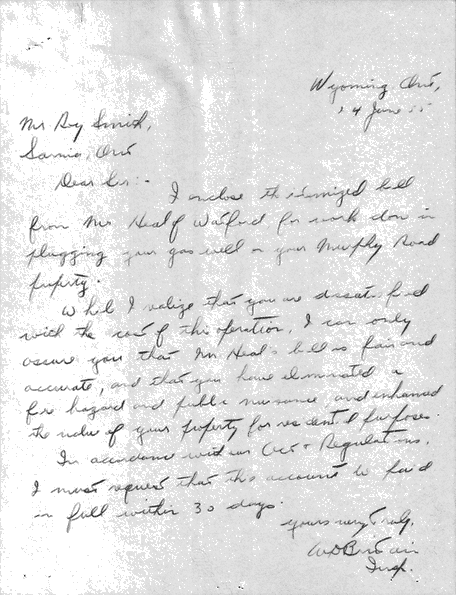 Wyoming Ont,
24 June 55
Mr Roy Smith,
Sarnia, Ont
Dear Sir:-
I enclose the itemized bill
from Mr Heal of Watford for work done in
plugging your gas well on your Murphy Road
property.
While I realize that you are dissatisfied
with the cost of this operation, I can only
assure you that Mr Heal's bill is fair and
accurate, and that you have eliminated a
fire hazard and public nuisance and enhanced
the value of your property for residential purposes.
In accordance with our Act & Regulations,
I must request that this account be paid
in full within 30 days.
Yours very truly,
Insp.